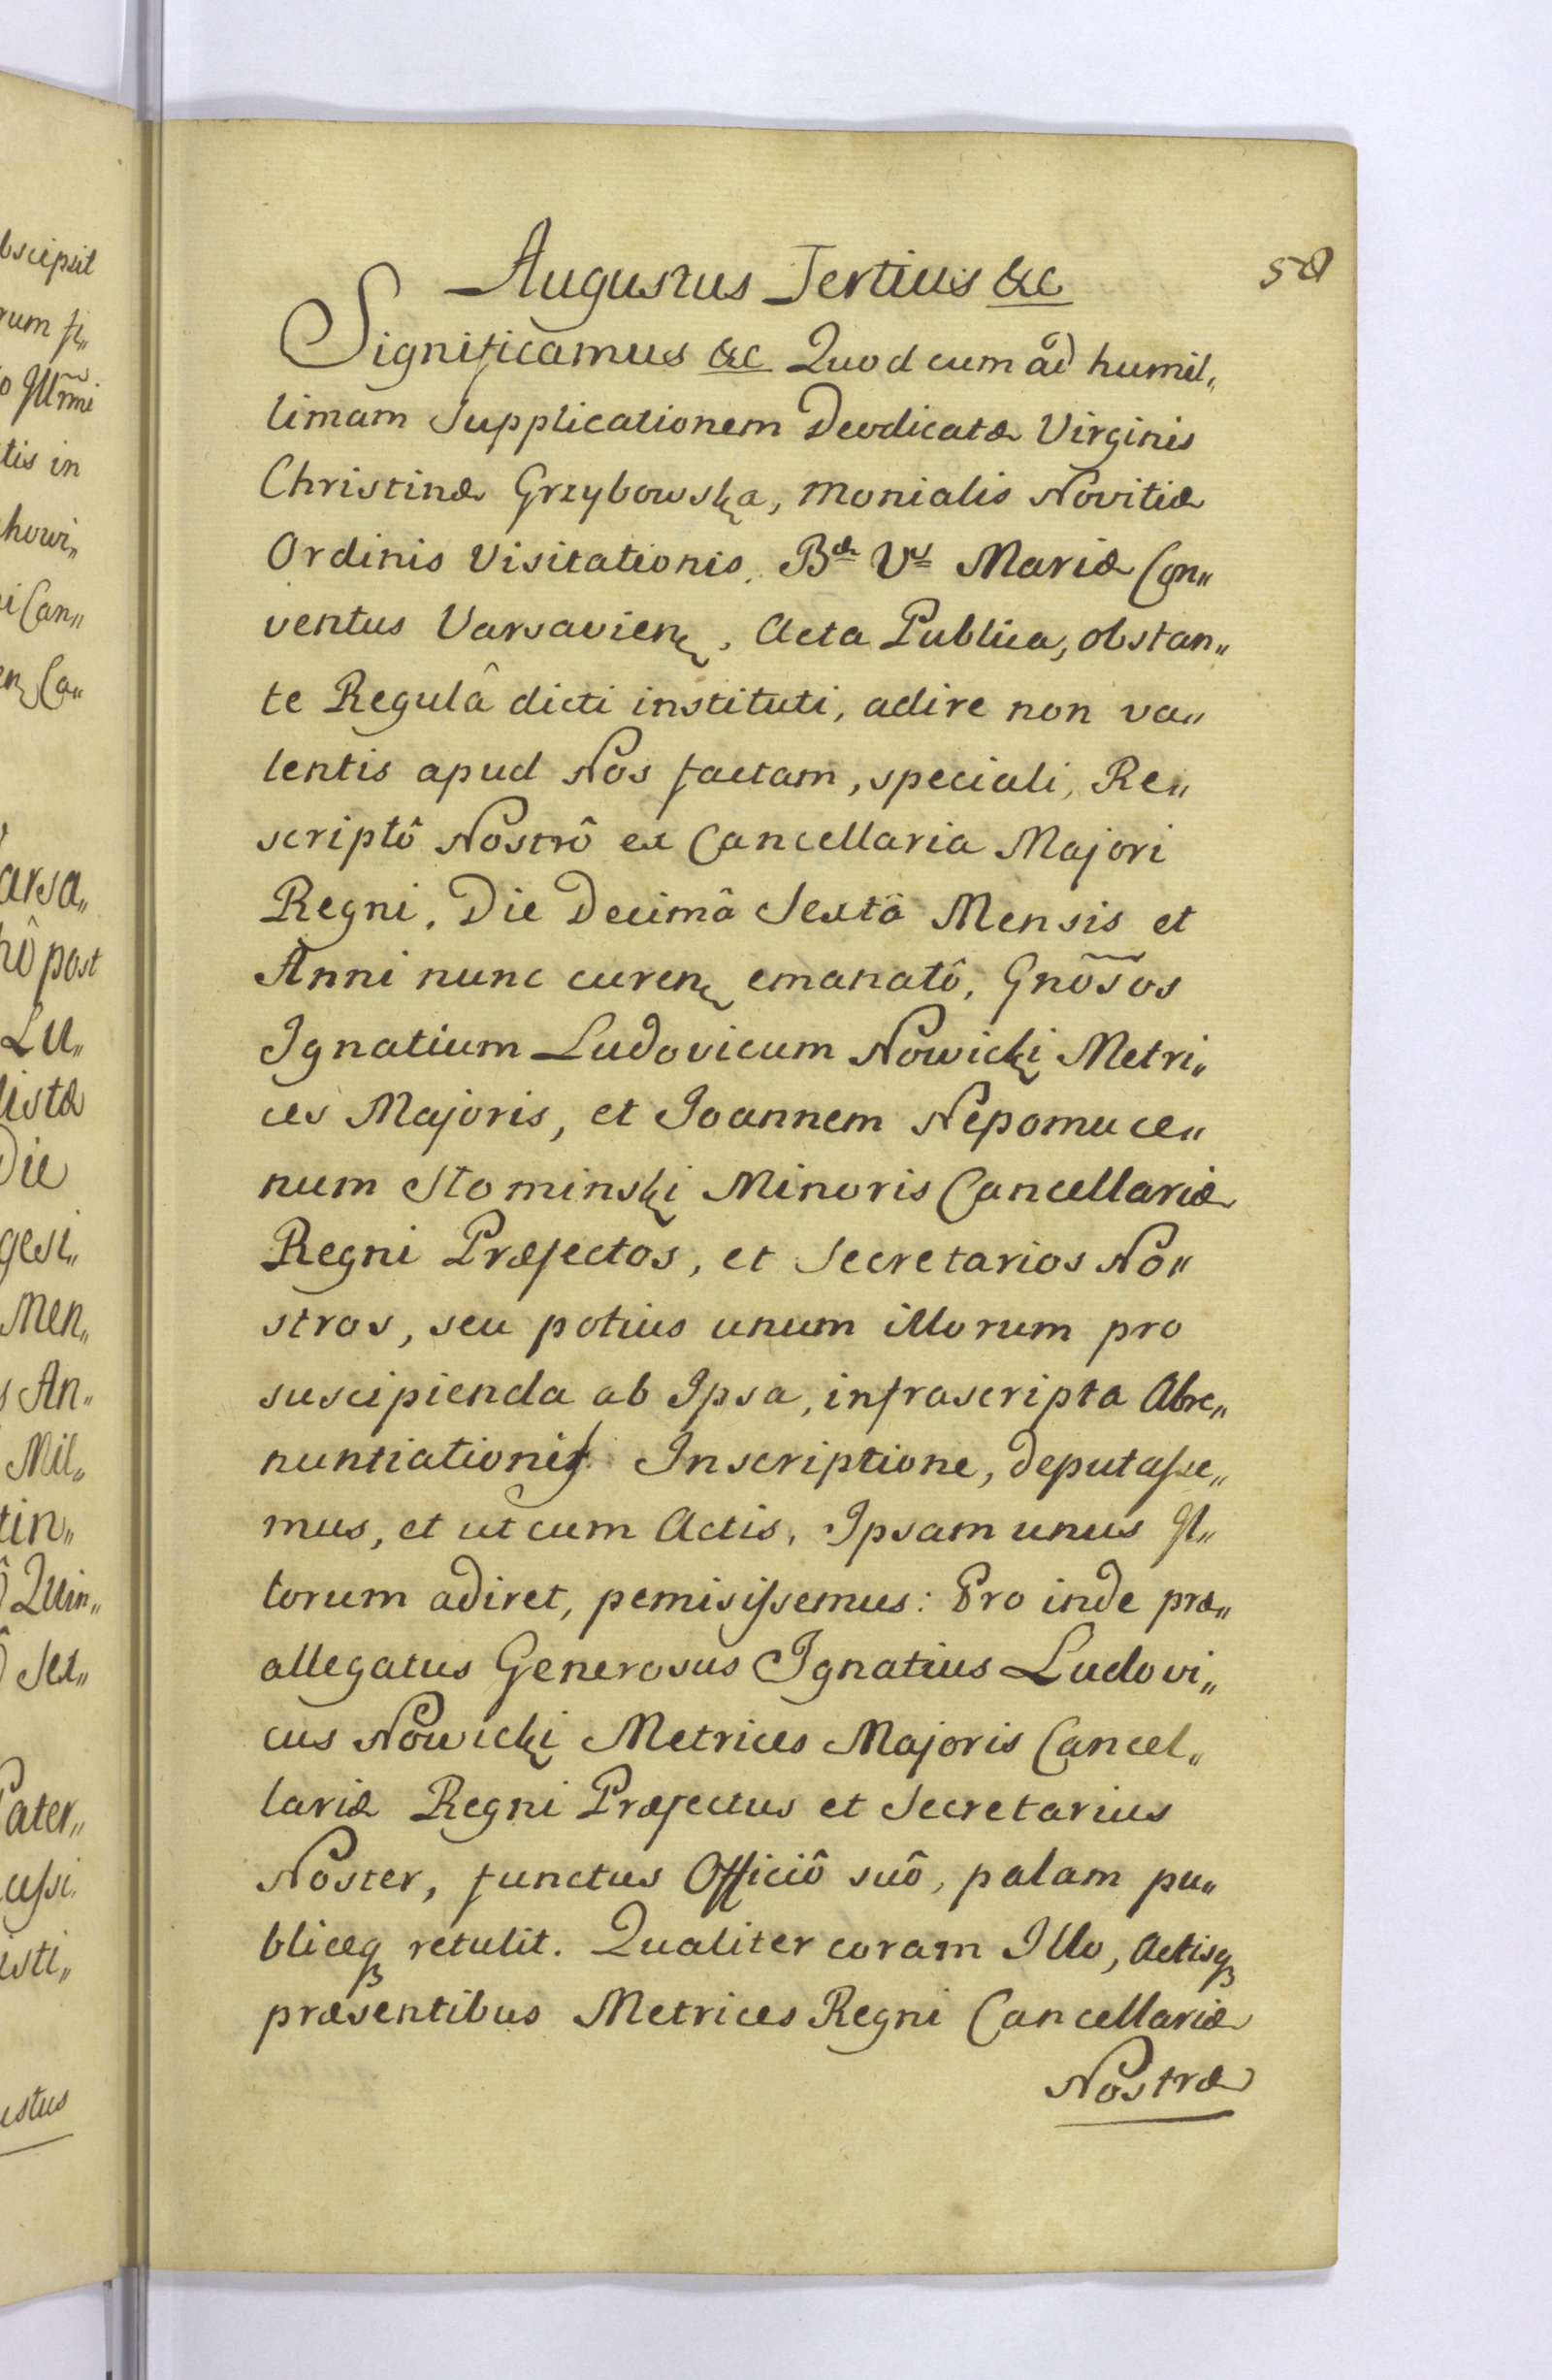 Augustus Tertius &c
Significamus &c Quod cum ad humil„
limam Supplicationem Deodicatæ Virginis
Christinæ Grzybowska, Monialis Novitiæ
Ordinis Visitationis Bæ Vs Mariæ Con„
ventus Varsavien, Acta Publica, obstan„
te Regulâ dicti instituti, adire non va„
lentis apud Nos factam, speciali, Re„
scriptô Nostrô ex Cancellaria Majori
Regni. Die Decimâ Sextâ Mensis et
Anni nunc curen emanatô, Gnõsos
Ignatium Ludovicum Nowicki Metri„
ces Majoris, et Joannem Nepomuce„
num Słominski Minoris Cancellariæ
Regni Præfectos, et Secretarios No„
stros, seu potius unum illorum pro
suscipienda ab Ipsa, infrascripta Abre„
nuntiationis Inscriptione, deputasse„
mus, et ut cum Actis, Ipsam unus Is„
torum adiret, pemisissemus: Pro inde præ„
allegatus Generosus Ignatius Ludovi„
cus Nowicki Metrices Majoris Cancel„
lariæ Regni Præfectus et Secretarius
Noster, functus Officiô suô, palam pu„
bliceq retulit. Qualiter coram Illo, Actisq
præsentibus Metrices Regni Cancellariæ
Nostræ
bscripsit
rum fi„
o Illmi
tis in
howi„
i Can„
en Ca„
arsa„
hô post
Lu„
listæ
Die
gesi„
Men„
s An„
Mil„
tin„
ô Quin„
ô Sex„
Pater„
cussi
isti„
ustus